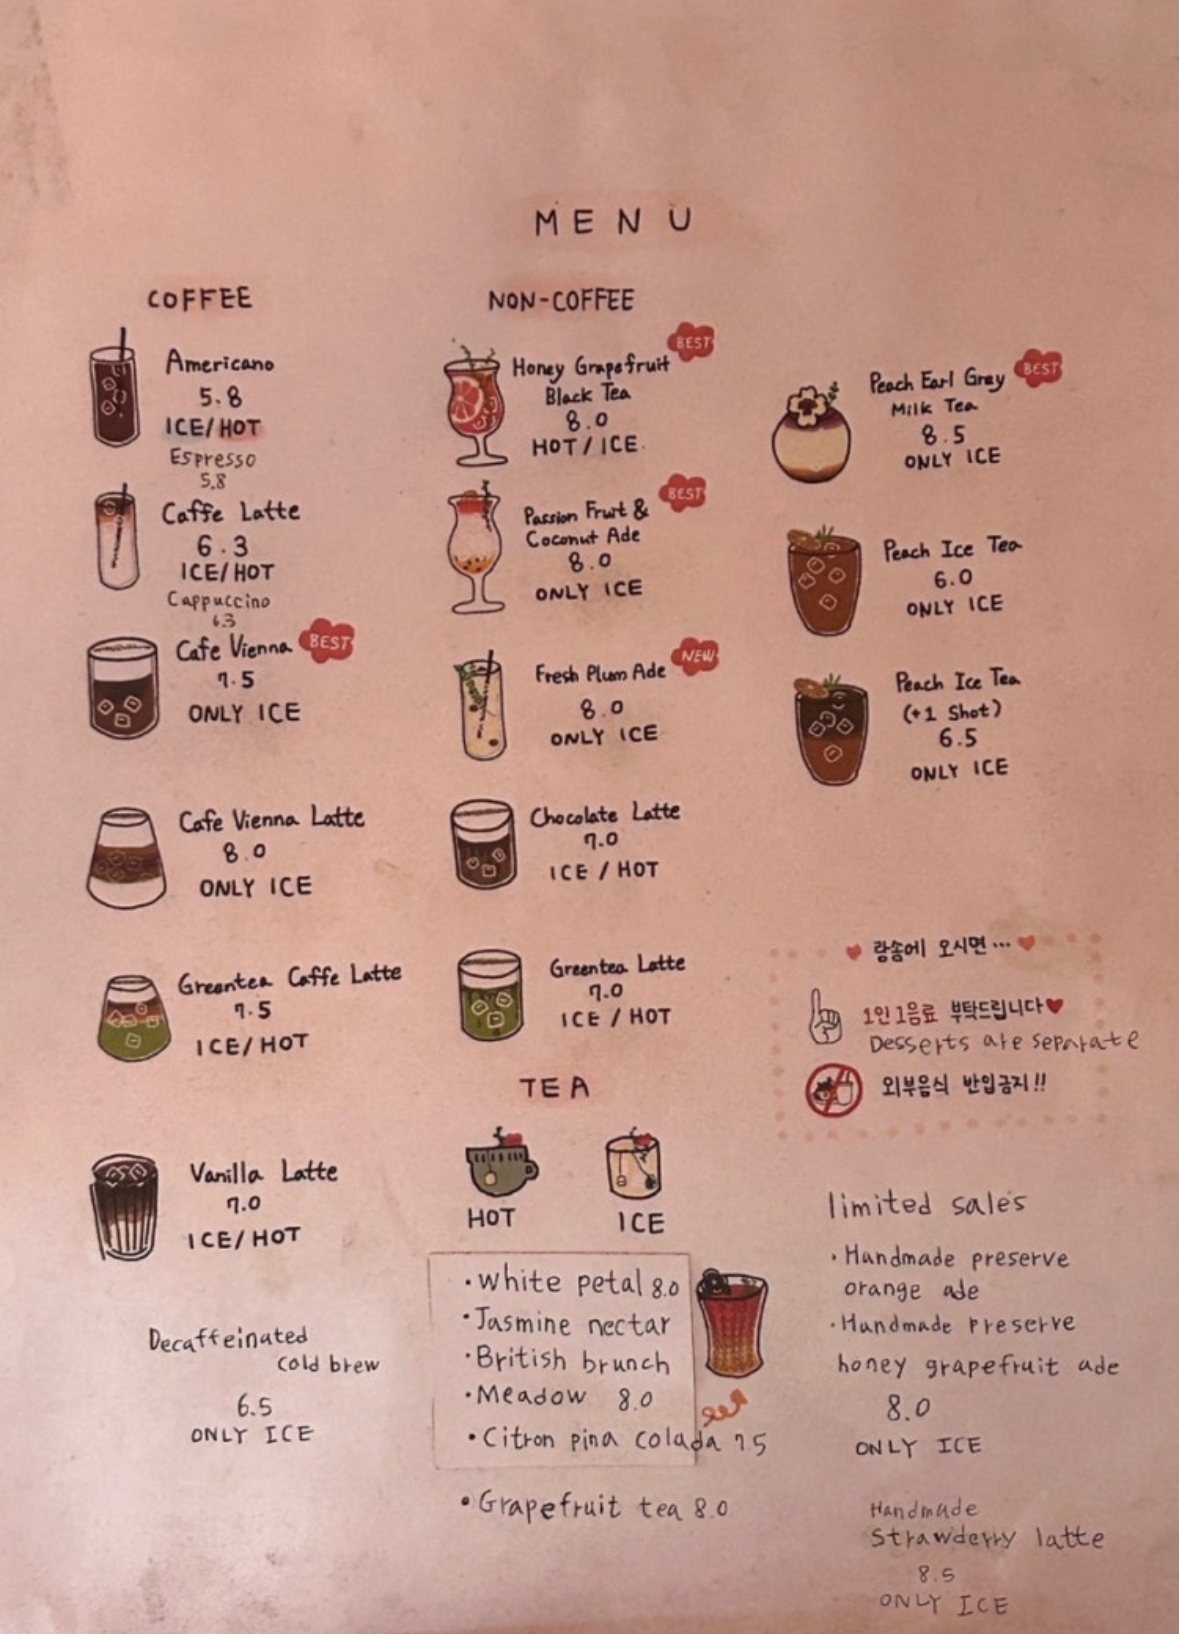 MENU
COFFEE
Americano
5.8
ICE/HOT
Espresso
5.8
Caffe Latte
6.3
ICE/HOT
Cappuccino
6.3
Cafe Vienna
BEST
7.5
ONLY ICE
Cafe Vienna Latte
8.0
ONLY ICE
Greentea Caffe Latte
7.5
ICE/HOT
Vanilla Latte
7.0
ICE/HOT
Decaffeinated
cold brew
6.5
ONLY ICE
NON-COFFEE
BEST
Honey Grapefruit
Black Tea
8.0
HOT/ICE.
BEST
Passion Fruit &
Coconut Ade
8.0
ONLY ICE
NEW
Fresh Plum Ade
8.0
ONLY ICE
Chocolate Latte
7.0
ICE / HOT
Greentea Latte
7.0
ICE / HOT
BEST
Peach Earl Gray
Milk Tea
8.5
ONLY ICE
Peach Ice Tea
6.0
ONLY ICE
Peach Ice Tea
(+1 Shot)
6.5
ONLY ICE
랑솜에 오시면...
1인 1음료 부탁드립니다♥
Desserts are separate
외부음식 반입금지!!
TEA
HOT
ICE
·White petal 8.0
·Jasmine nectar
·British brunch
·Meadow 8.0
·Citron pina colada 7.5
·Grapefruit tea 8.0
limited sales
·Handmade preserve
orange ade
·Handmade preserve
honey grapefruit ade
8.0
ONLY ICE
Handmade
Strawderry latte
8.5
ONLY ICE